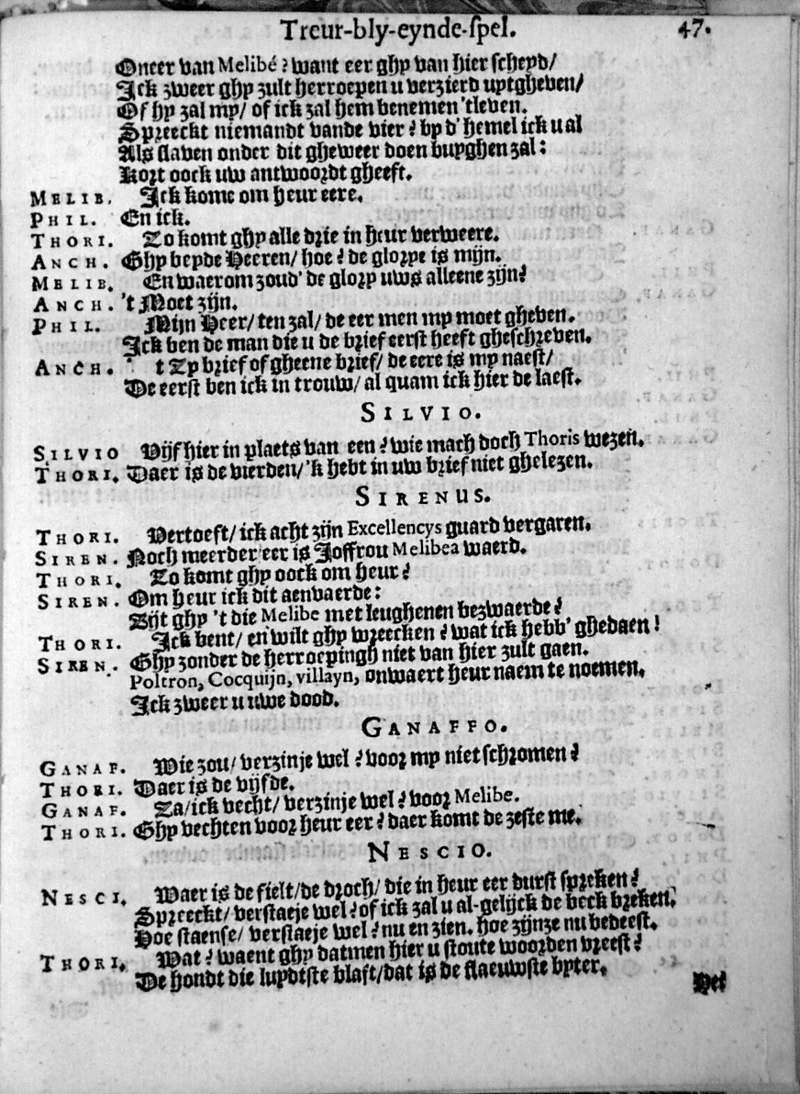 Treur-bly-eynde-spel. 47.
Oneer van Melibé? want eer ghy van hier scheyd/
Ick zweer ghy zult herroepen u verzierd uytgheven/
Of hy zal my/ of ick zal hem benemen 'tleven.
Spreeckt niemandt vande vier? by d'hemel ick u al
Als slaven onder dit gheweer doen buyghen zal:
Kort oock uw antwoordt gheeft.
MELIB. Ick kome om heur eere.
PHIL. En ick.
THORI. Zo komt ghy alle drie in heur verweere.
ANCH. Ghy beyde Heeren/ hoe? de glorye is mijn.
MELIB. En waerom zoud' de glory uws alleene zijn?
ANCH. 't Moet zijn.
PHIL. Mijn Heer/ ten zal/ de eer men my moet gheven.
Ick ben de man die u de brief eerst heeft gheschreven.
ANCH. t Zy brief of gheene brief/ de eere is my naest/
De eerst ben ick in trouw/ al quam ick hier de laest.
SILVIO.
SILVIO Vijf hier in plaets van een? wie mach doch Thoris wezen.
THORI. Daer is de vierden/ 'k hebt in uw brief niet ghelezen.
SIRENUS.
THORI. Vertoeft/ ick acht zijn Excellencys guard vergaren.
SIREN. Noch meerder eer is Joffrou Melibea waerd.
THORI. Zo komt ghy oock om heur?
SIREN. Om heur ick dit aenvaerde:
Zijt ghy 't die Melibe met leughenen bezwaerde?
THORI. Ick bent/ en wilt ghy wreecken? wat ick hebb' ghedaen!
SIREN. Ghy zonder de herroepingh niet van hier zult gaen.
Poltron, Cocquijn, villayn, onwaert heur naem te noemen,
Ick zweer u uwe dood.
GANAFFO.
GANAF. Wie zou/ verzinje wel? voor my niet schromen?
THORI. Daer is de vijfde.
GANAF. Za/ ick vecht/ verzinje wel? voor Melibe.
THORI. Ghy vechten voor heur eer? daer komt de zeste me.
NESCIO.
NESCI. Waer is de fielt/ de droch/ die in heur eer durst spreken?
Spreeckt/ verstaeje wel? of ick zal u al-gelijck de beck breken.
Hoe staense/ verstaeje wel? nu en zien. hoe zijnze nu bedeest.
THORI. Wat? waent ghy datmen hier u stoute woorden vreest?
De hondt die luydtste blaft/ dat is de flaeuwste byter.
Het